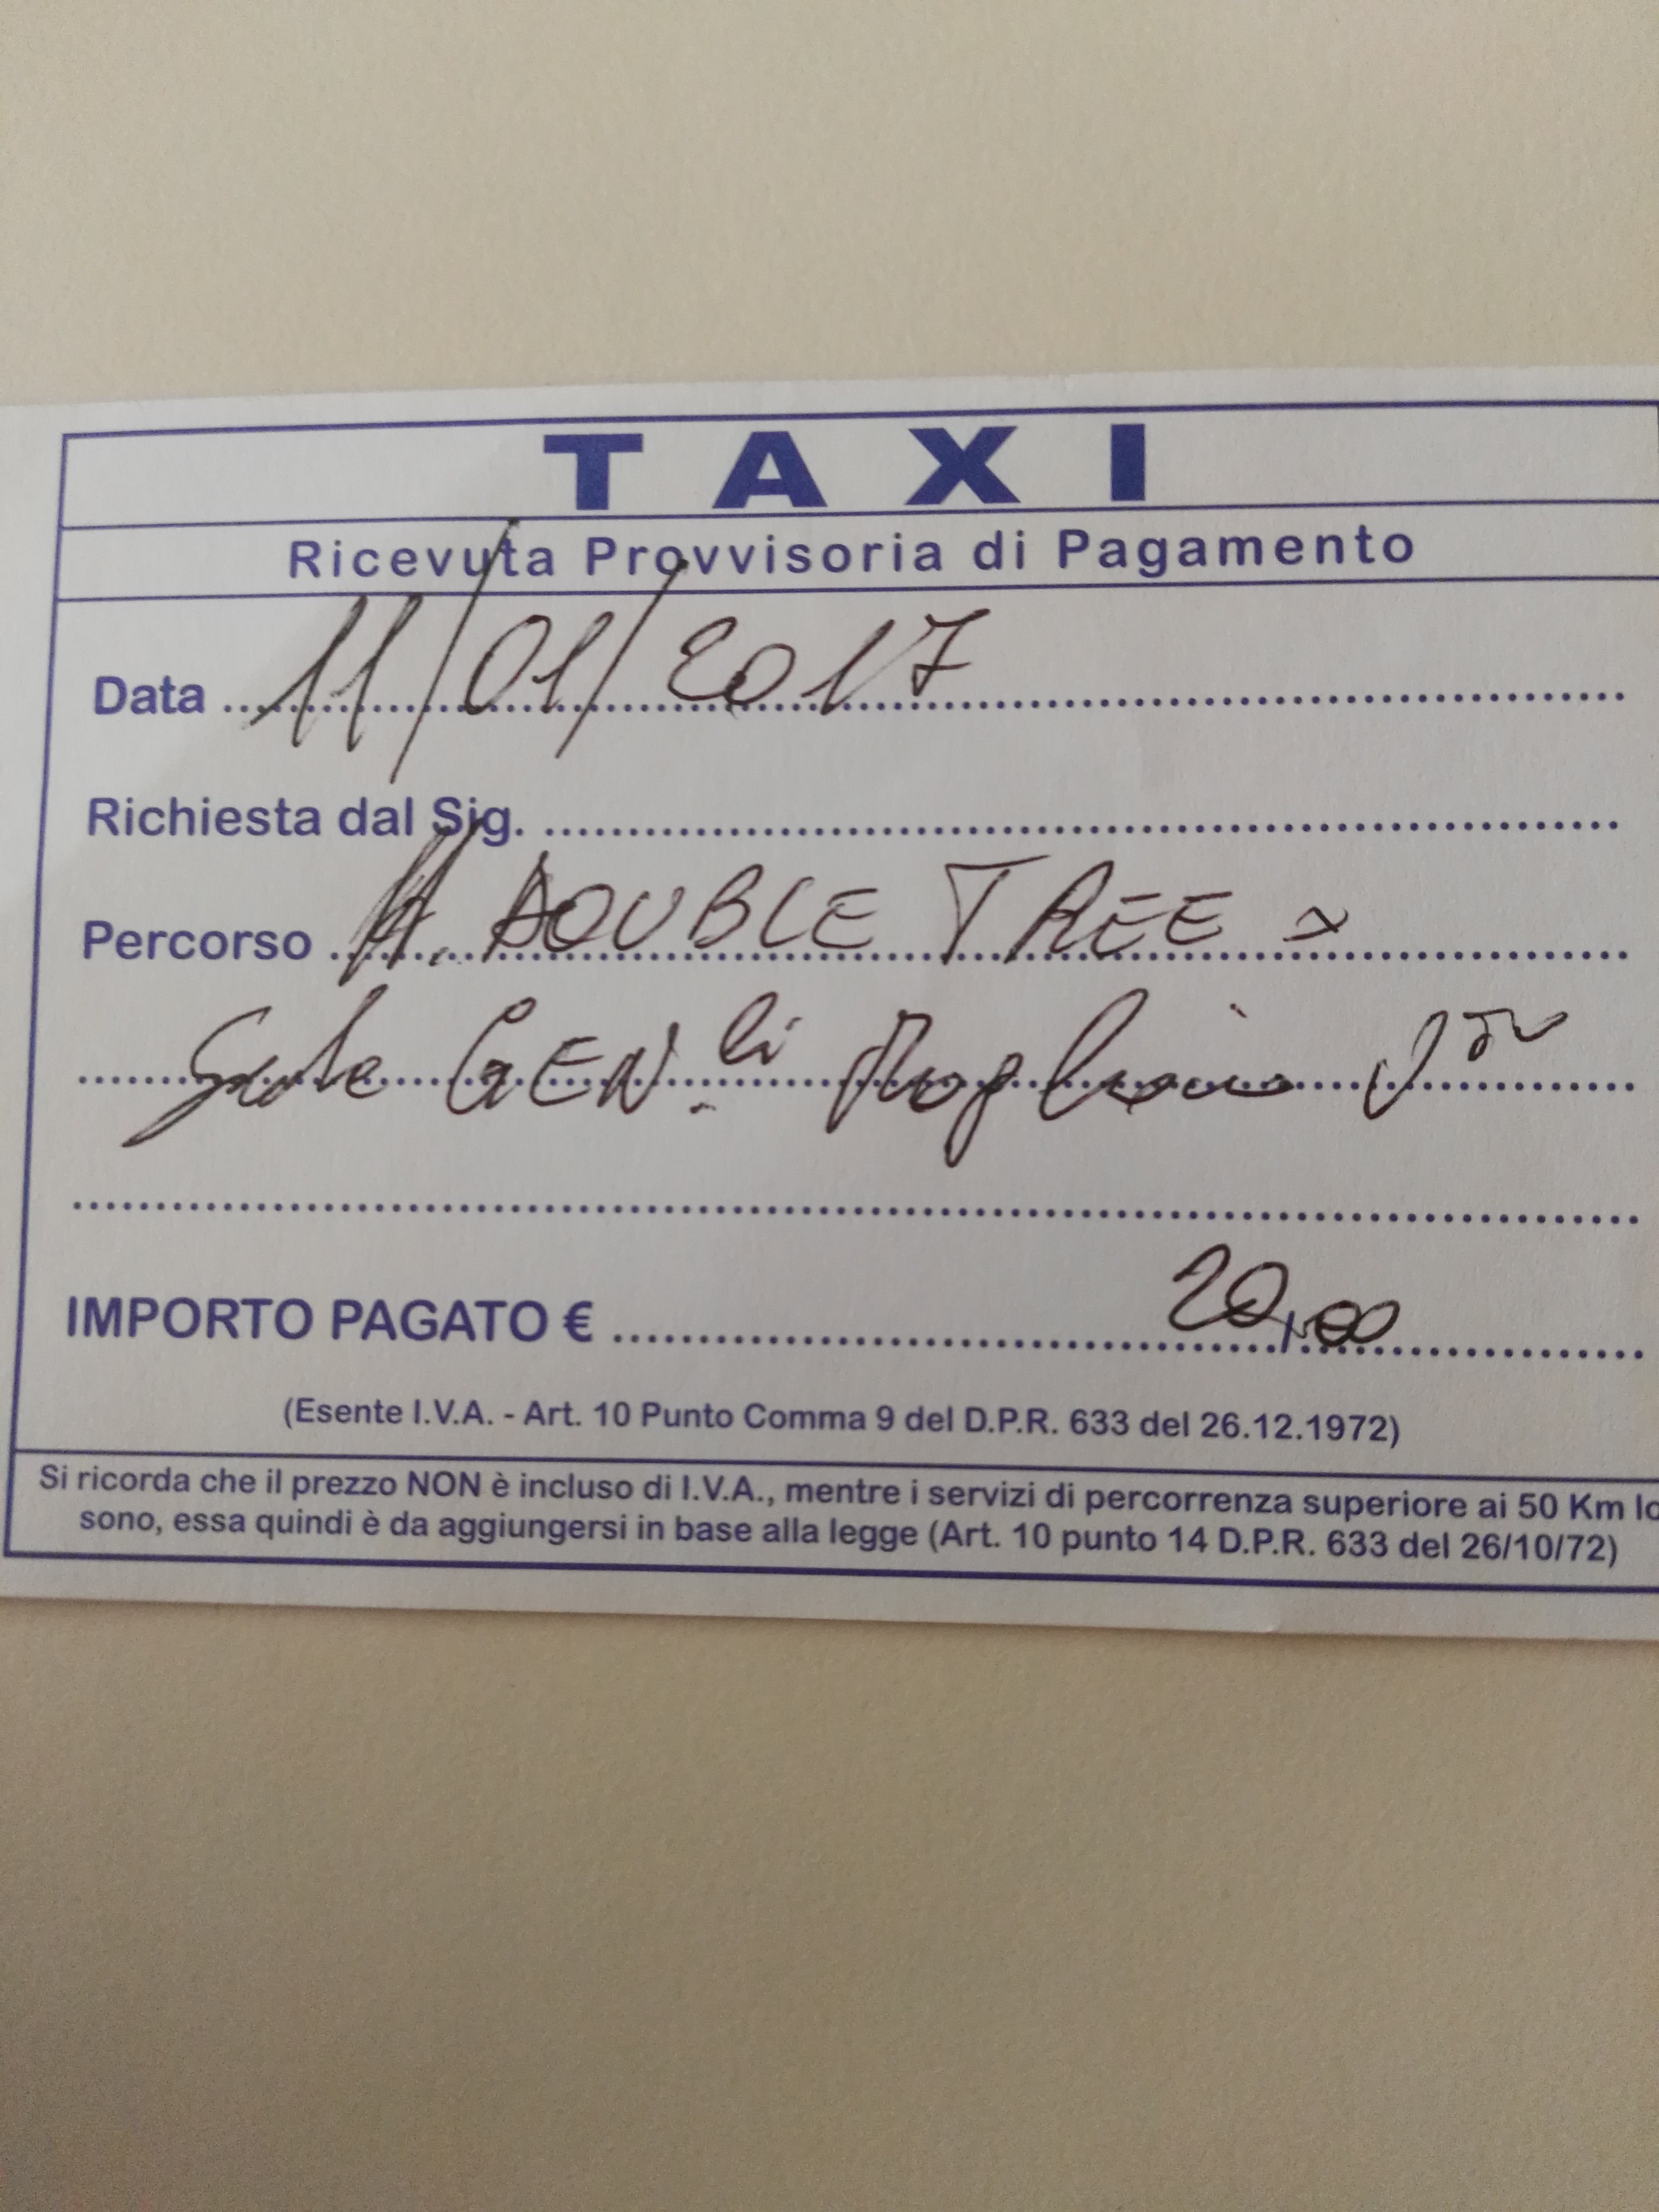 TAXI
Ricevuta Provvisoria di Pagamento
Data 11/01/2017
Richiesta dal Sig.
Percorso H. DOUBLE TREE x
GEN.li Mogliano
IMPORTO PAGATO € 20,00
(Esente I.V.A. - Art. 10 Punto Comma 9 del D.P.R. 633 del 26.12.1972)
Si ricorda che il prezzo NON è incluso di I.V.A., mentre i servizi di percorrenza superiore ai 50 Km lo
sono, essa quindi è da aggiungersi in base alla legge (Art. 10 punto 14 D.P.R. 633 del 26/10/72)